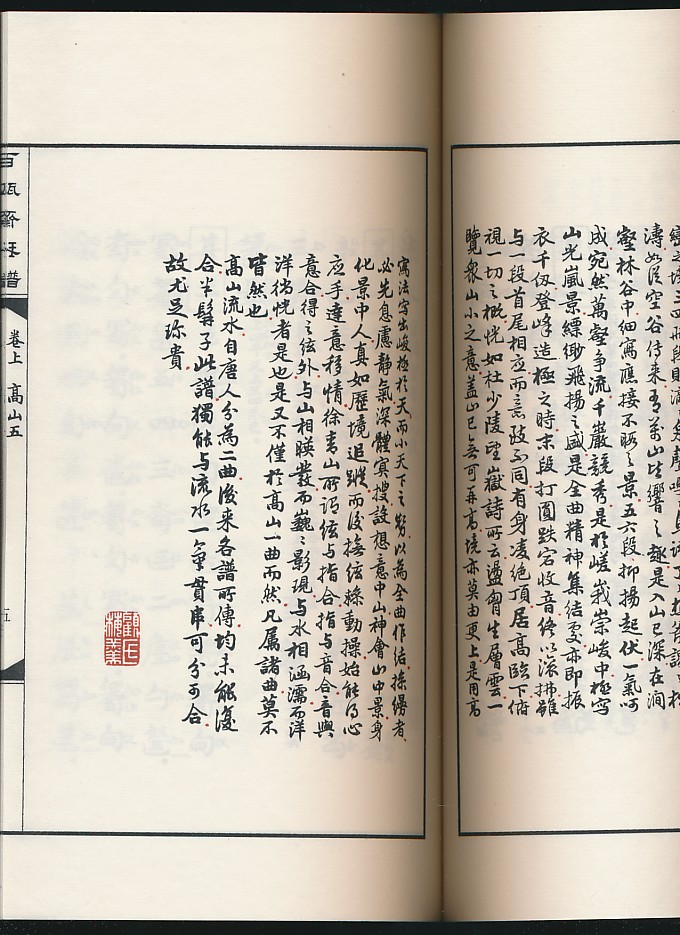 巒之境三四兩段則滿耳泉聲
濤如從空谷傳來有萬山皆響之趣是入山已深在澗
壑林谷中細寫應接不暇之景五六段抑揚起伏一氣呵
成宛然萬壑爭流千巖競秀是於嵯峩崇峻中極寫
山光嵐景縹緲飛揚之盛是全曲精神集結處亦即振
衣千仞登峰造極之時末段打圓跌宕收音終以滾拂雖
與一段首尾相應而意致不同有身凌絕頂居高臨下俯
視一切之概恍如杜少陵望嶽詩所云盪胷生層雲一
覽衆山小之意蓋山已無可再高境亦莫由更上是用高
寫法寫出峻極於天而小天下之勢以為全曲作結操縵者
必先息慮靜氣深體冥搜設想意中山神會山中景身
化景中人真如歷境追蹤而後撫絃動操始能得心
應手達意移情徐青山所謂絃與指合指與音合音與
意合得之絃外與山相暎發而巍〻影現與水相涵濡而洋
洋徜恍者是也是又不僅於高山一曲而然凡屬諸曲莫不
皆然也
高山流水自唐人分為二曲後來各譜所傳均未能復
合半髯子此譜獨能與流水一氣貫串可分可合
故尤足珍貴
顧氏梅羹
百瓶齋琴譜
卷上 高山五
五